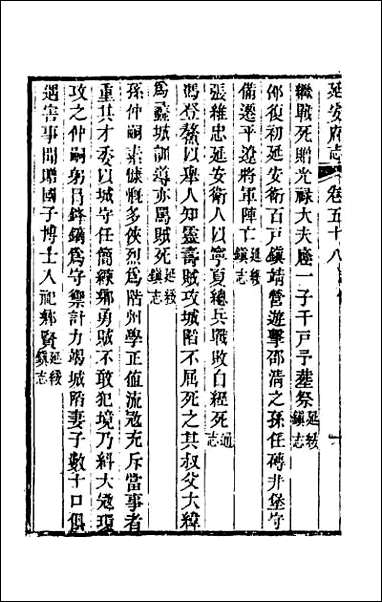 延安府志 卷五十八
繼戰死贈光祿大夫廕一子千戶予葬祭延綏鎭志
邵復初延安衛百戶鎭靖營遊擊邵淸之孫任磚井堡守
備遷平遼將軍陣亡延綏鎭志
張維忠延安衛人以寧夏總兵戰敗自經死通志
馮登鰲以舉人知靈壽賊攻城陷不屈死之其叔父大緯
爲蠡城訓導亦罵賊死延綏鎭志
孫仲嗣素慷慨多俠烈爲階州學正值流寇充斥當事者
重其才委以城守任簡練鄉勇賊不敢犯境乃糾大寇環
攻之仲嗣躬冒鋒鏑爲守禦計力竭城陷妻子數十口俱
遇害事聞贈國子博士入祀鄉賢延綏鎭志